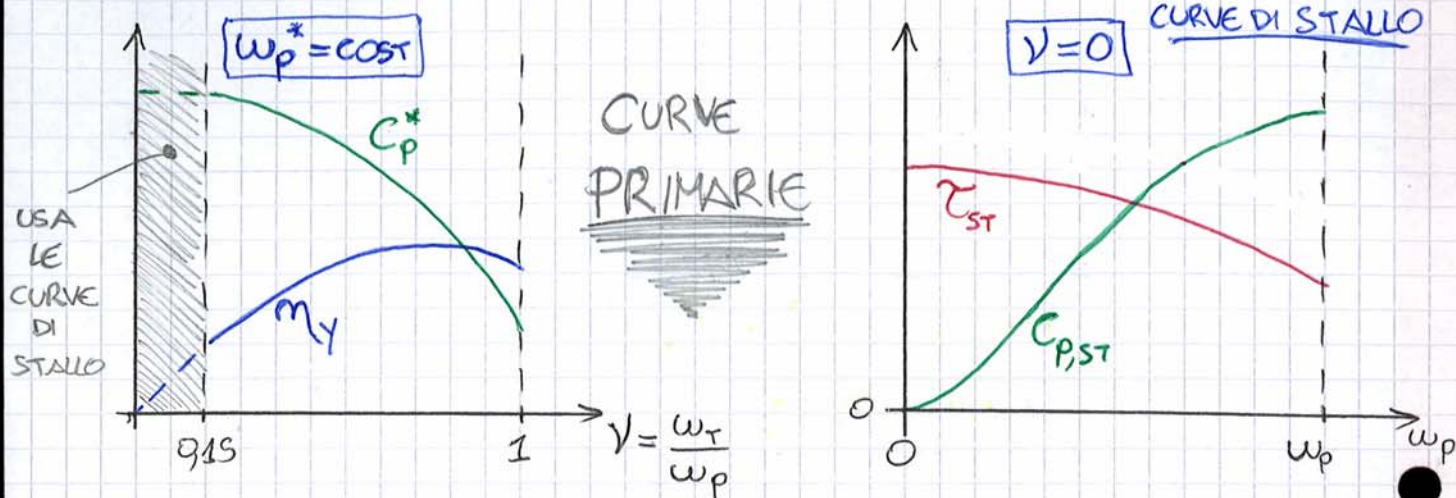 ωp* = COST
Cp*
ηy
USA
LE
CURVE
DI
STALLO
0,15
1
ν = ωT / ωp
CURVE
PRIMARIE
CURVE DI STALLO
ν = 0
τST
Cp,ST
0
0
ωp
ωp